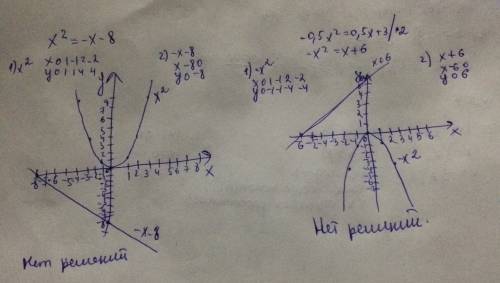 x² = -x-8
1) x²
x 0 1 -1 2 -2
y 0 1 1 4 4
2) -x-8
x -8 0
y 0 -8
y
x²
1 2 3 4 5 6 7 8
x
-x-8
Нет решений
-0,5x² = 0,5x+3 /·2
-x² = x+6
1) -x²
x 0 1 -1 2 -2
y 0 -1 -1 -4 -4
2) x+6
x -6 0
y 0 6
x+6
1 2 3 4 5 6
x
-x²
Нет решений.